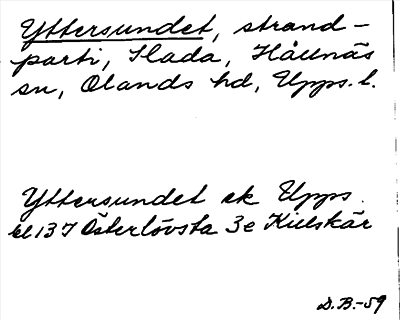 Yttersundet, strand-
parti, Slada, Hållnäs
sn, Olands hd, Upps. l.
Yttersundet ek Upps.
bl 137 Österlövsta 3e Kullskär
D.B.-59